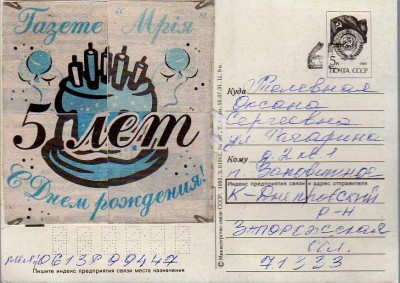 Газете "Мрія"
5 лет
С Днем рождения!
5К
1988
ПОЧТА СССР
Куда
Оксана
Сергеевна
ул. Гагарина
Кому
д. 2 кв 1
Индекс предприятия связи и адрес отправителя
К-Днепровский
р-н
Запорожская
обл.
71333
Пишите индекс предприятия связи места назначения
© Министерство связи СССР.